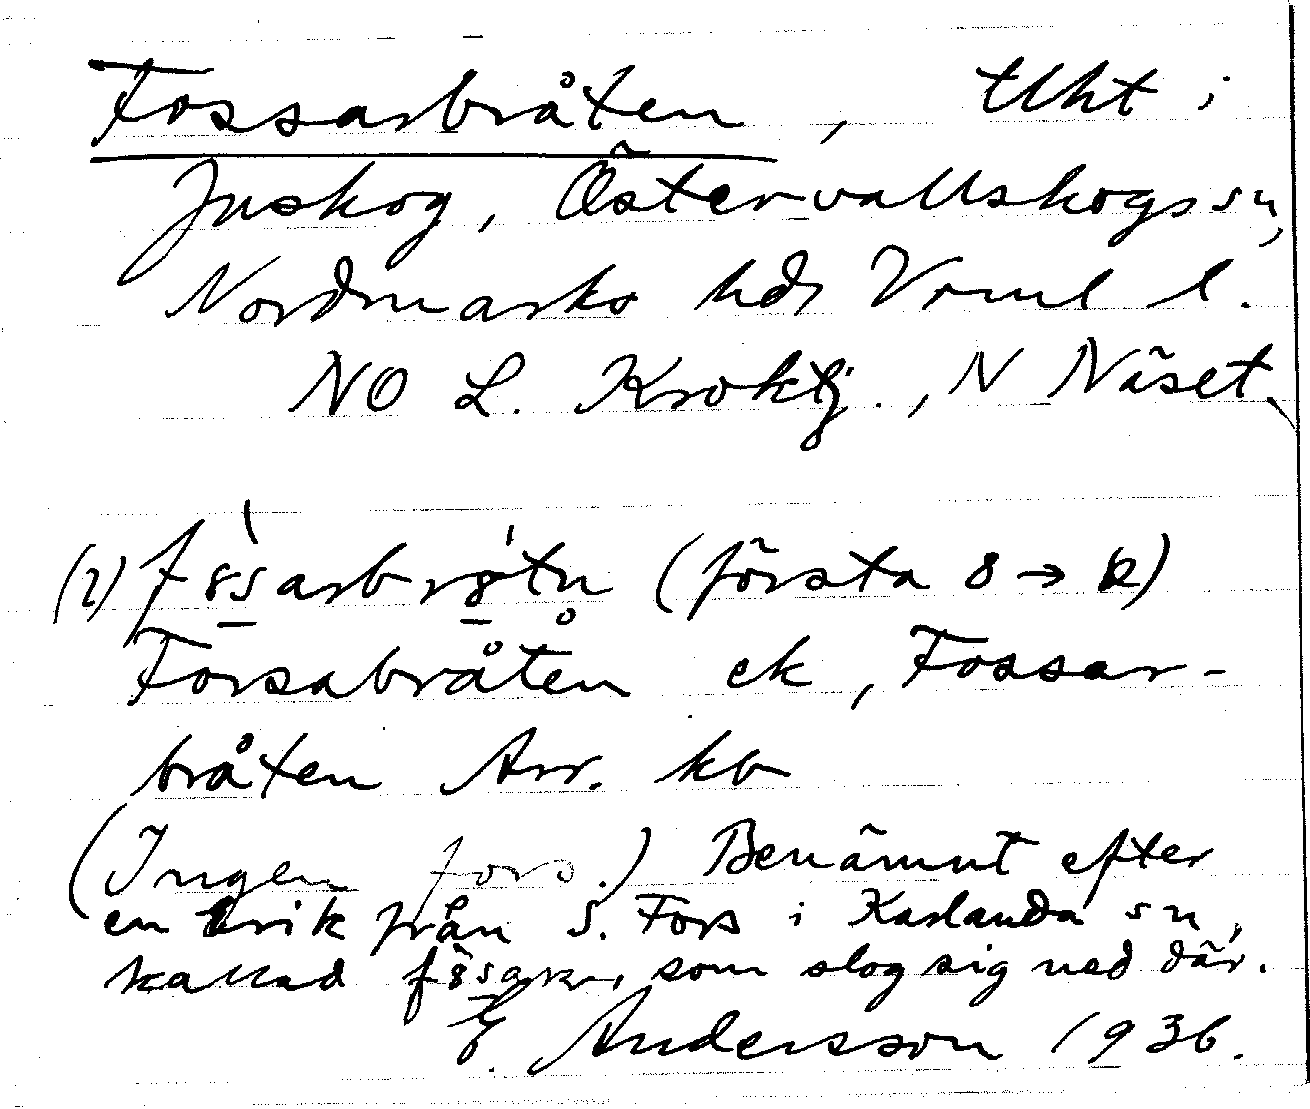 Fossarbråten, tlht i
Juskog, Östervallskogs sn,
Nordmarks hd, Vrml l.
NO L. Kroktj., N Näset.
(1) f8sarbr8tn (första 8 → )
Forsabråten ek, Fossar-
bråten Arr. kb
(Ingen fors.) Benämnt efter
en Erik från S. Fors i Karlanda sn,
kallad f8sarn, som slog sig ned där.
E. Andersson 1936.